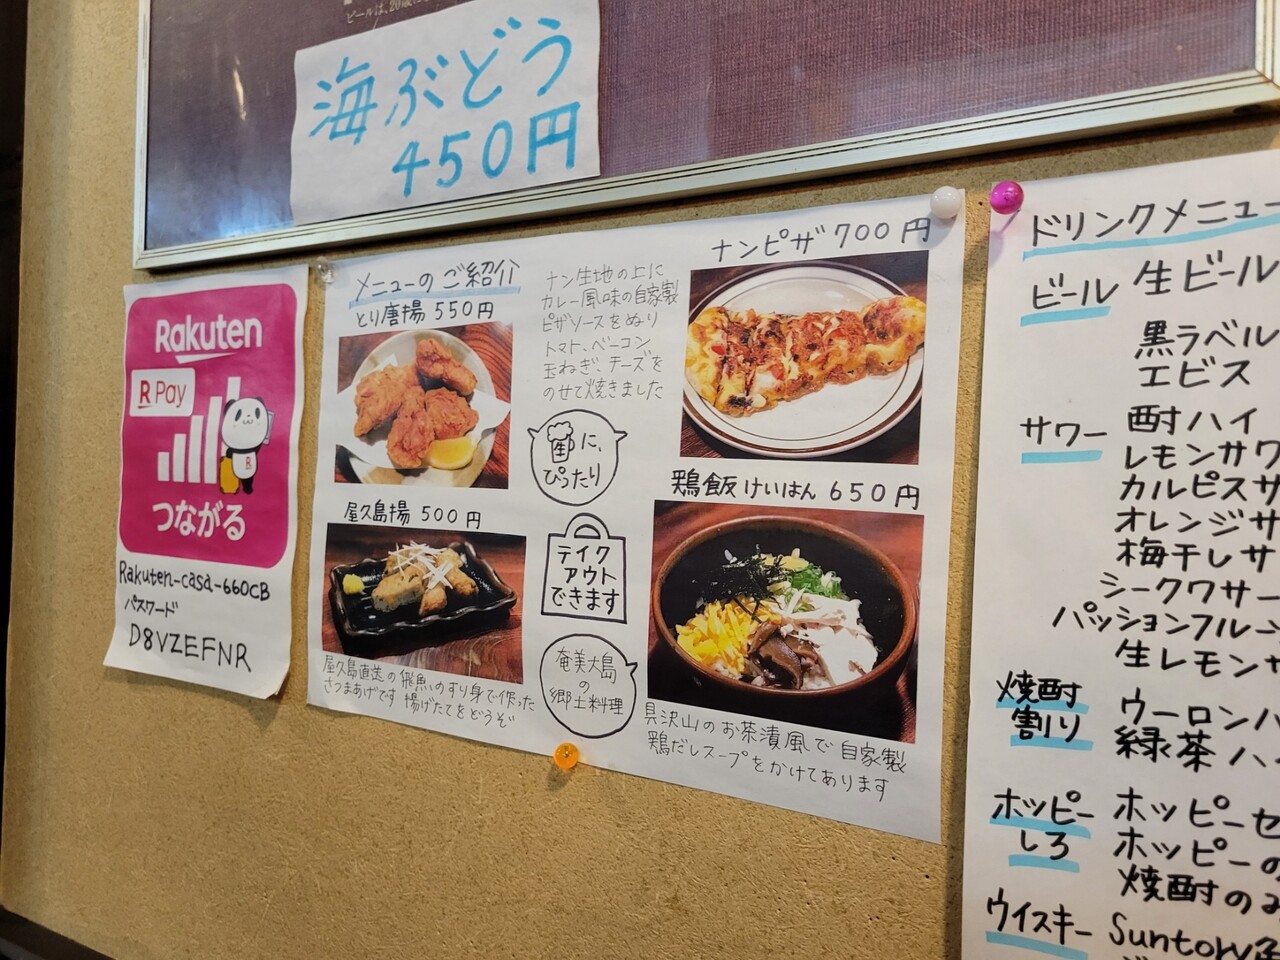 海ぶどう
450円
Rakuten
R Pay
つながる
Rakuten-casa-660CB
パスワード
D8VZEFNR
メニューのご紹介
とり唐揚 550円
ナン生地の上に
カレー風味の自家製
ピザソースをぬり
トマト、ベーコン
玉ねぎ、チーズを
のせて焼きました
ナンピザ 700円
生に、
ぴったり
屋久島揚 500円
テイク
アウト
できます
鶏飯 けいはん 650円
屋久島直送の飛魚のすり身で作った
さつまあげです 揚げたてをどうぞ
奄美大島
の
郷土料理
具沢山のお茶漬風で自家製
鶏だしスープをかけてあります
ドリンクメニュー
ビール 生ビール
黒ラベル
エビス
サワー 酎ハイ
レモンサワ
カルピスサ
オレンジサ
梅干しサ
シークワサー
パッションフルーツ
生レモンサ
焼酎
割り
ウーロンハ
緑茶ハイ
ホッピー
しろ
ホッピーセ
ホッピーの
焼酎のみ
ウイスキー Suntory角